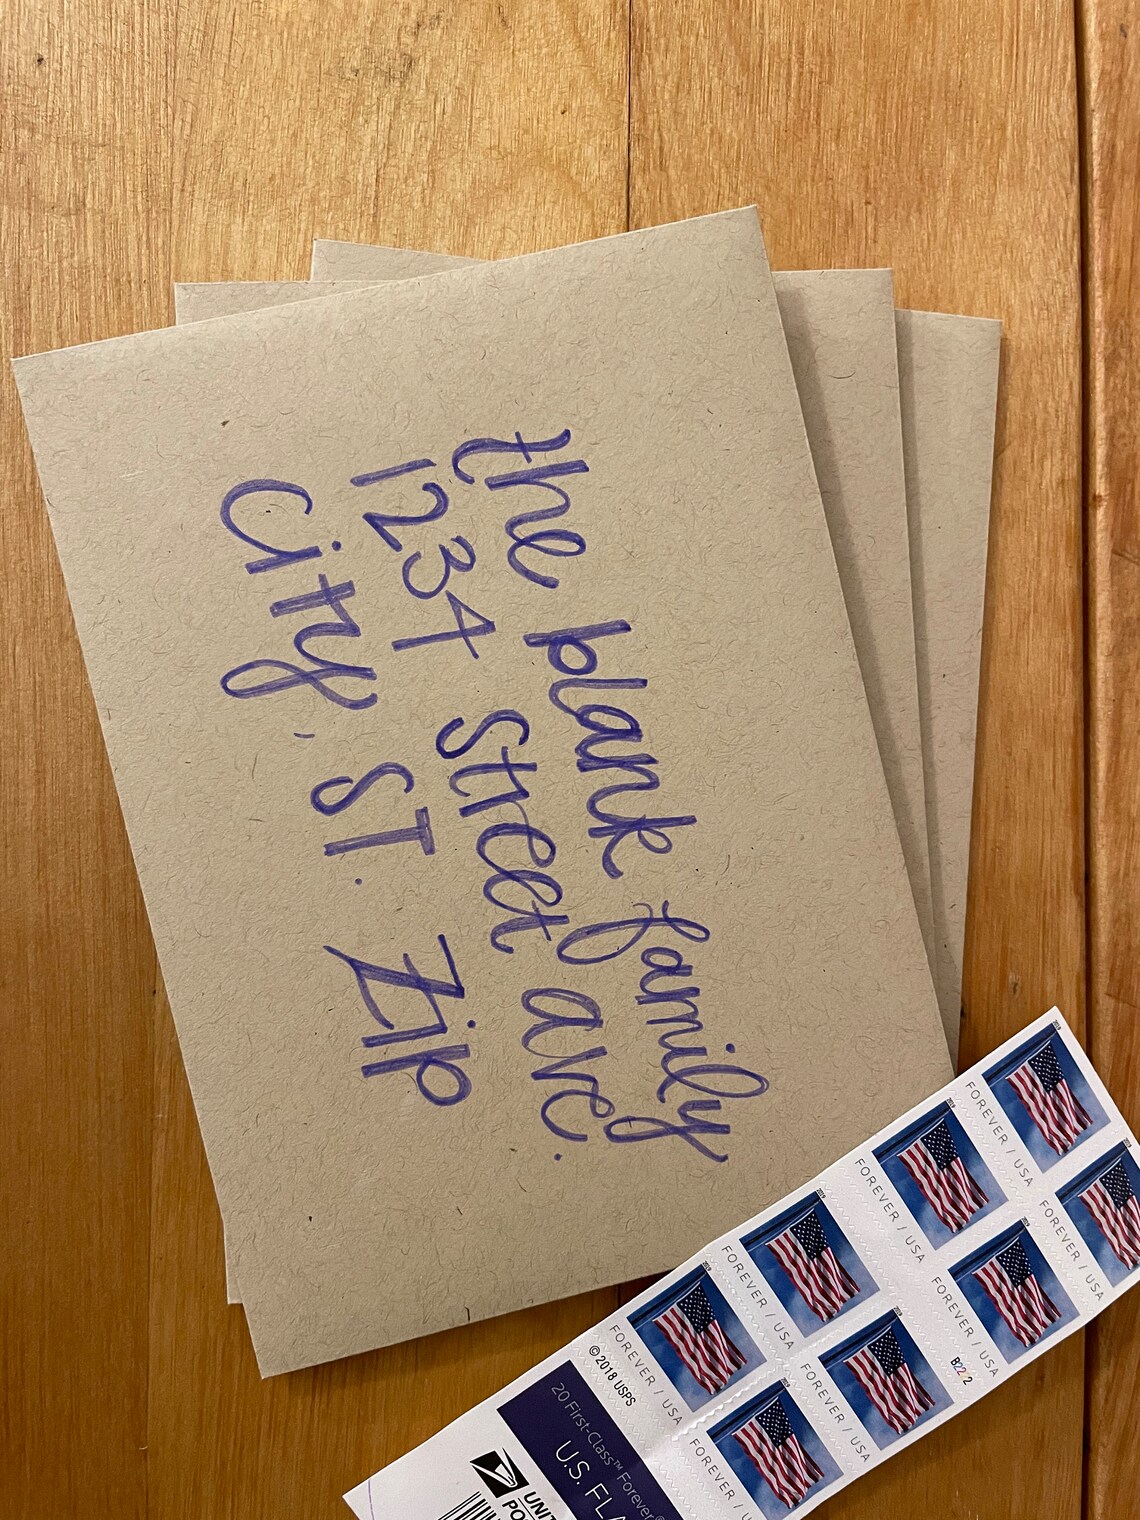 the blank family
1234 street ave.
City, ST. Zip
2019
FOREVER / USA
2019
FOREVER / USA
2019
FOREVER / USA
2019
FOREVER / USA
2019
FOREVER / USA
2019
FOREVER / USA
2019
FOREVER / USA
2019
FOREVER / U
©2018 USPS
B2222
20 First-Class™ Forever®
U.S. FLA
UNIT
PO